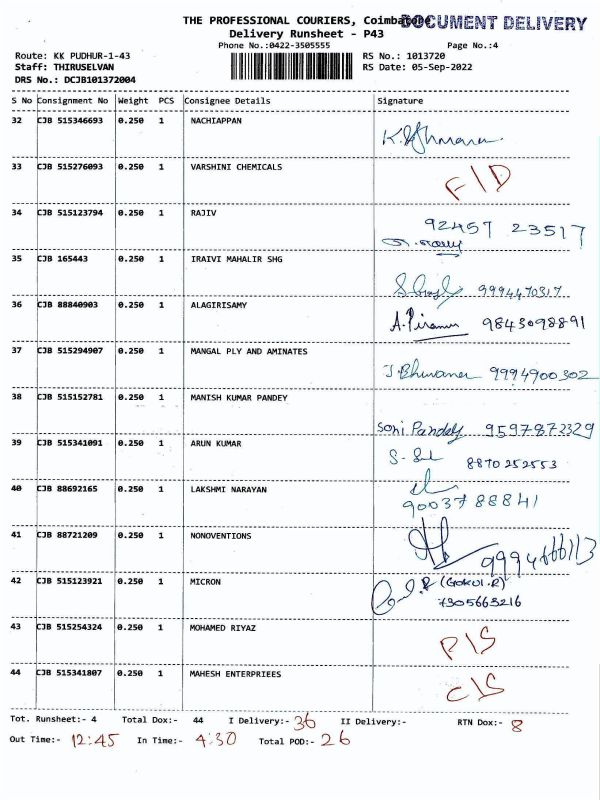 THE PROFESSIONAL COURIERS, Coimbatore
DOCUMENT DELIVERY
Delivery Runsheet - P43
Phone No.:0422-3505555 Page No.:4
Route: KK PUDHUR-1-43 RS No.: 1013720
Staff: THIRUSELVAN RS Date: 05-Sep-2022
DRS No.: DCJB101372004
S No Consignment No Weight PCS Consignee Details Signature
32 CJB 515346693 0.250 1 NACHIAPPAN
33 CJB 515276093 0.250 1 VARSHINI CHEMICALS
F/D
34 CJB 515123794 0.250 1 RAJIV
92457 23517
35 CJB 165443 0.250 1 IRAIVI MAHALIR SHG
9994470317
36 CJB 88840903 0.250 1 ALAGIRISAMY
9843098891
37 CJB 515294907 0.250 1 MANGAL PLY AND AMINATES
9994900302
38 CJB 515152781 0.250 1 MANISH KUMAR PANDEY
Soni Pandey 9597872329
39 CJB 515341091 0.250 1 ARUN KUMAR
8870252553
40 CJB 88692165 0.250 1 LAKSHMI NARAYAN
9003788841
41 CJB 88721209 0.250 1 NONOVENTIONS
42 CJB 515123921 0.250 1 MICRON
(GOKUL.R)
7305663216
43 CJB 515254324 0.250 1 MOHAMED RIYAZ
P/S
44 CJB 515341807 0.250 1 MAHESH ENTERPRIEES
C/S
Tot. Runsheet:- 4 Total Dox:- 44 I Delivery:- 36 II Delivery:- RTN Dox:- 8
Out Time:- 12:45 In Time:- 4:30 Total POD:- 26